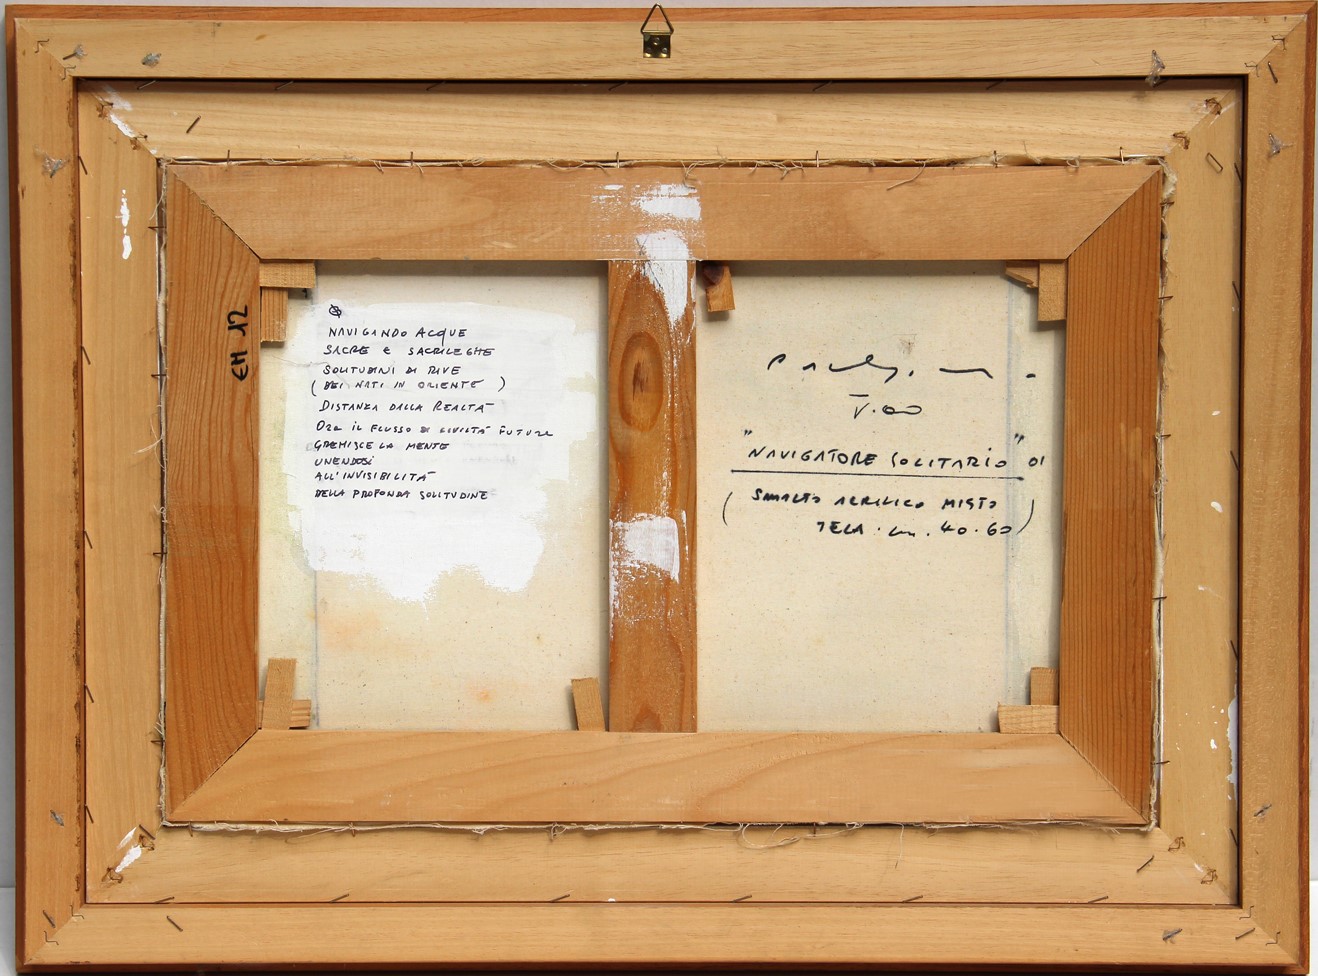 EH 12
NAVIGANDO ACQUE
SACRE E SACRILEGHE
SOLITUDINI DI RIVE
(BEI NATI IN ORIENTE)
DISTANZA DALLA REALTA'
ORA IL FLUSSO DI CIVILTA' FUTURE
GREMISCE LA MENTE
UNENDOSI
ALL'INVISIBILITA'
DELLA PROFONDA SOLITUDINE
"NAVIGATORE SOLITARIO" 01
(SMALTO ACRILICO MISTO
TELA. cm. 40.60)